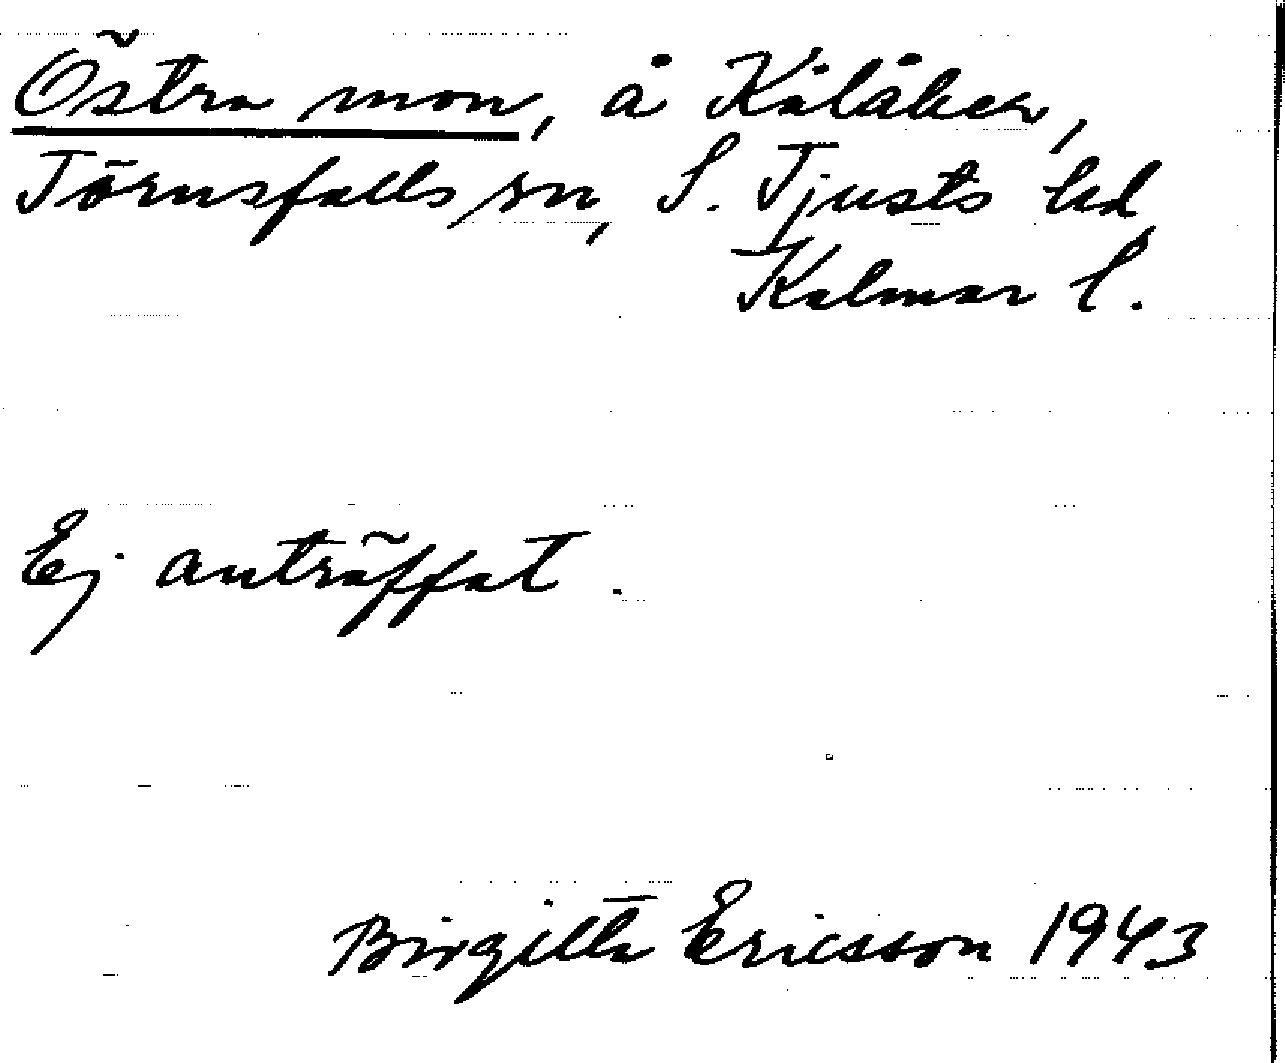 Östra mon, å Kålåker,
Törnsfalls sn, S. Tjusts hd
Kalmar l.
Ej anträffat.
Birgitta Ericsson 1943